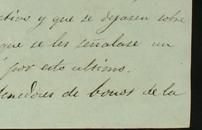 ctivo y que se dejasen sobre
que se les señalase un
por esto ultimo.
tenedores de bonos de la